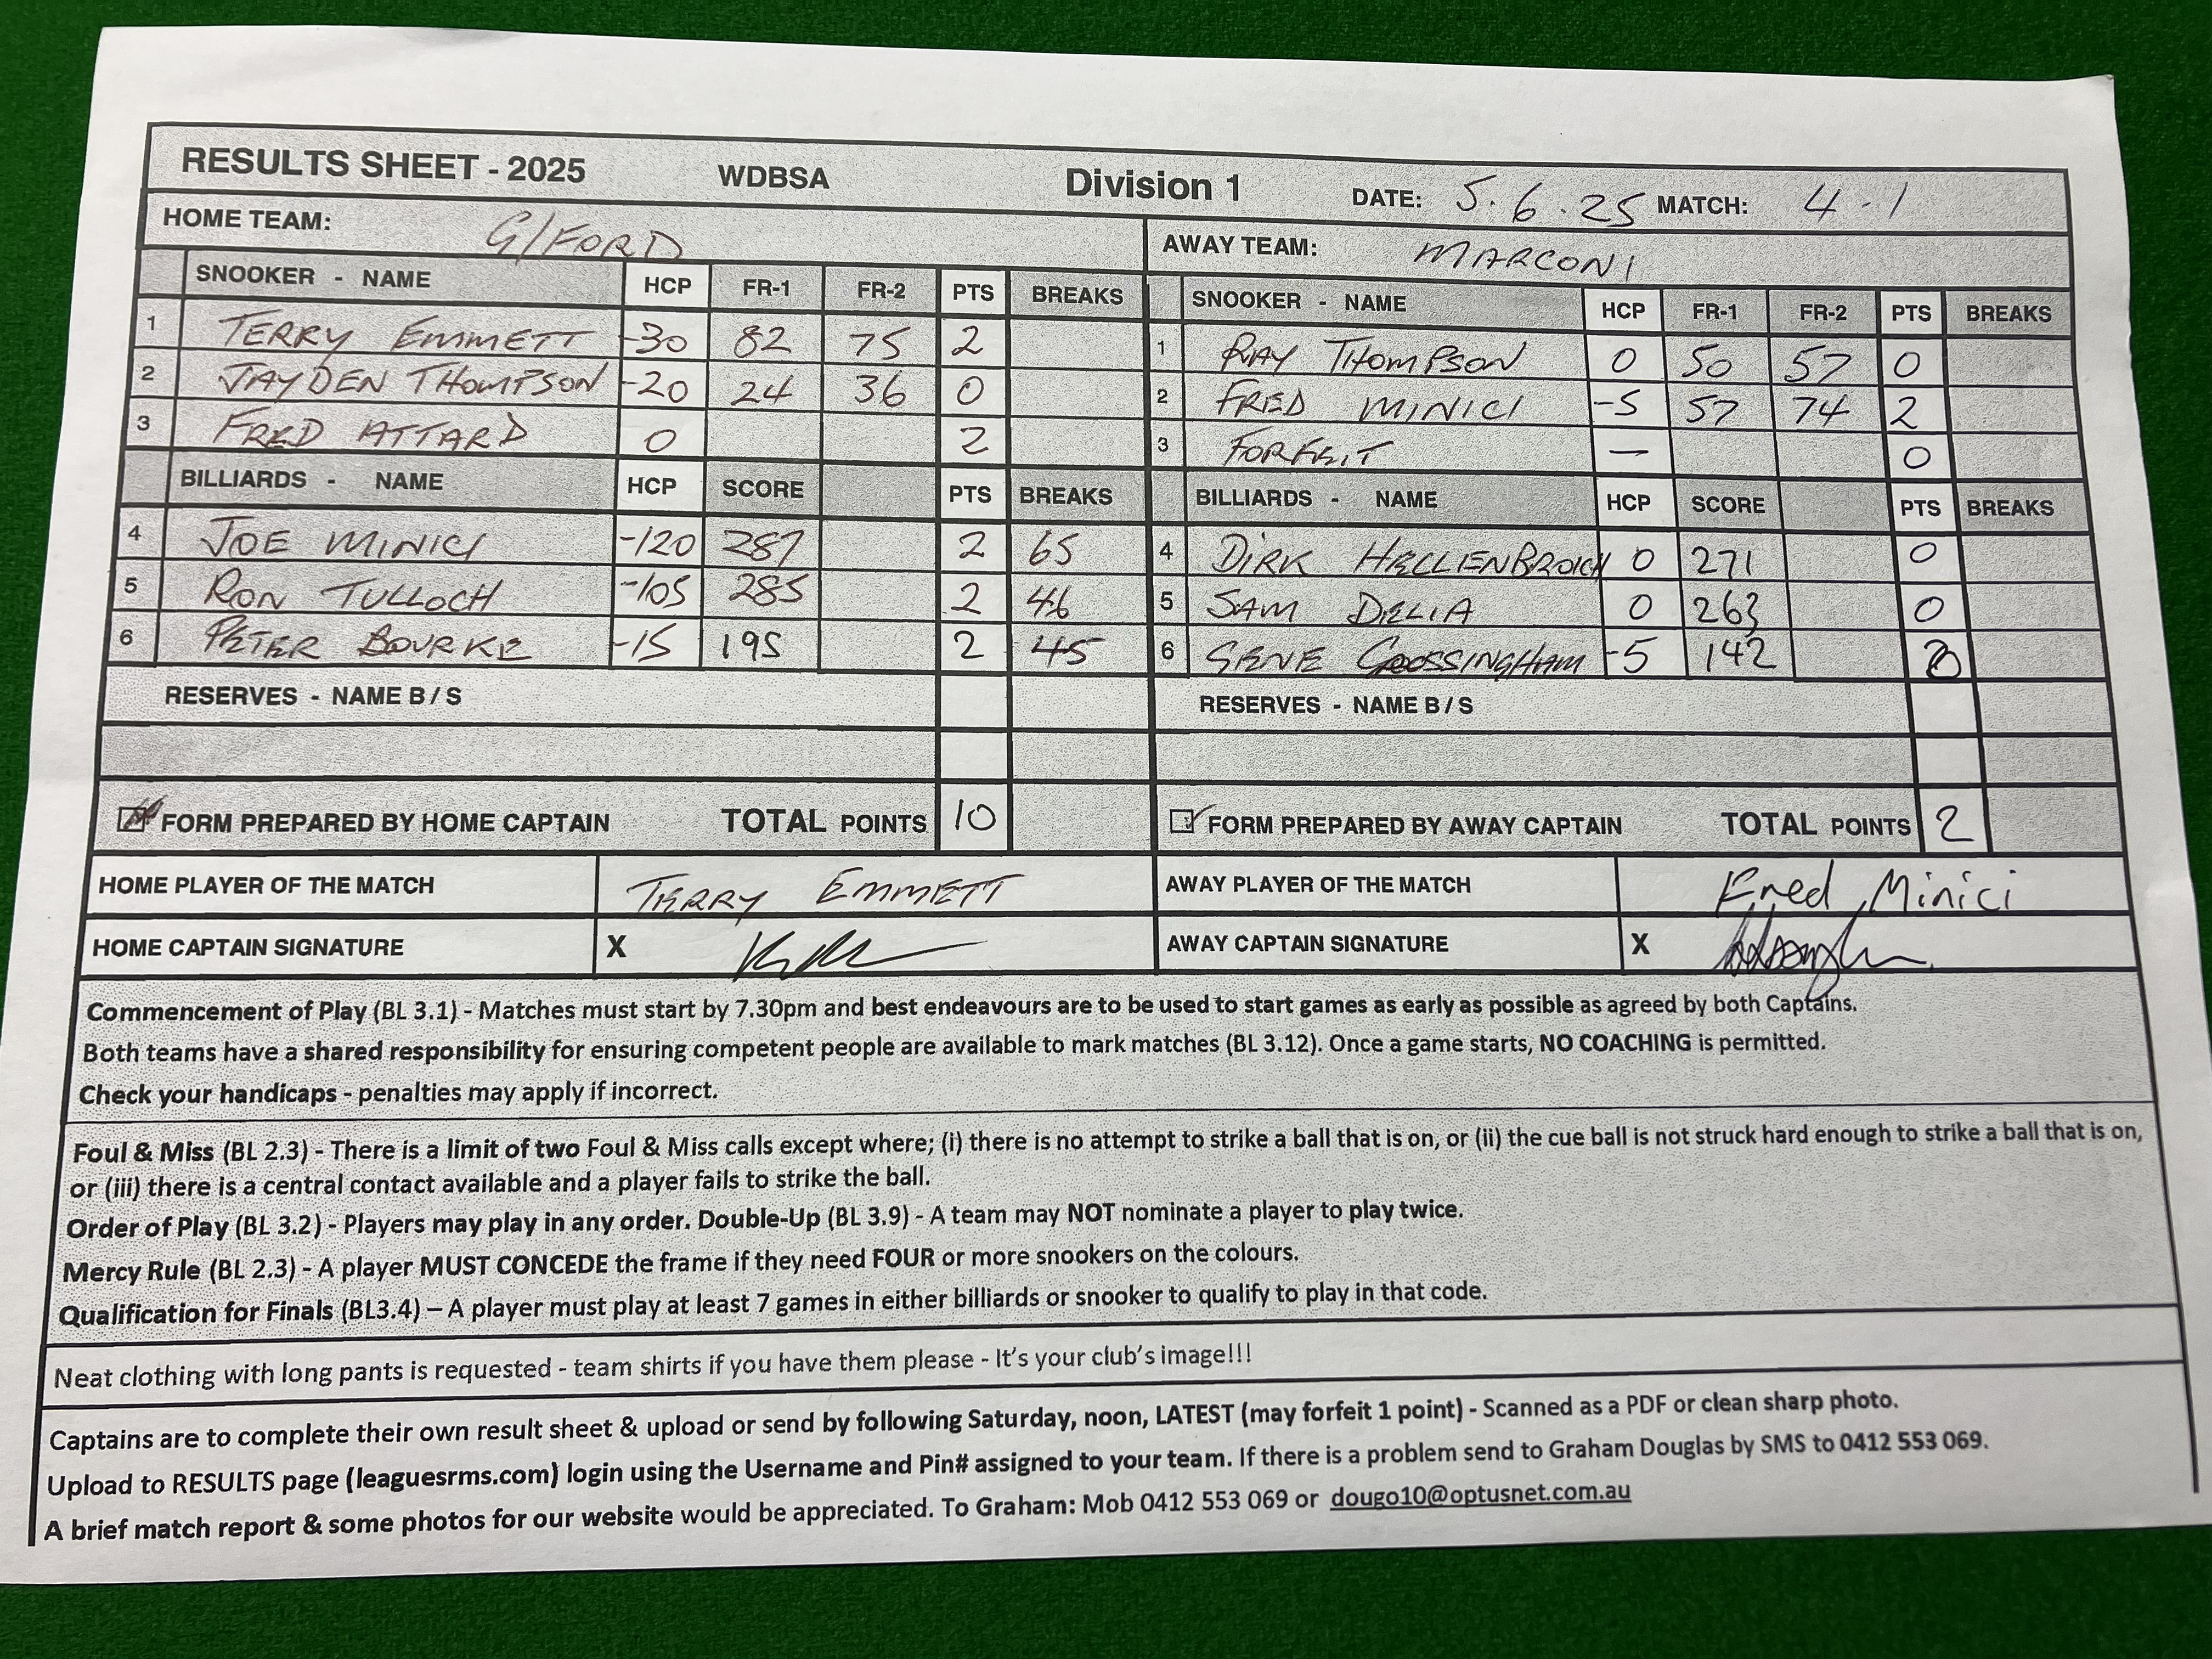 RESULTS SHEET - 2025 WDBSA Division 1 DATE: 5.6.25 MATCH: 4-1
HOME TEAM: G/FORD AWAY TEAM: MARCONI
SNOOKER - NAME HCP FR-1 FR-2 PTS BREAKS SNOOKER - NAME HCP FR-1 FR-2 PTS BREAKS
1 TERRY EMMETT -30 82 75 2 1 RAY THOMPSON 0 50 57 0
2 JAYDEN THOMPSON -20 24 36 0 2 FRED MINICI -5 57 74 2
3 FRED ATTARD 0 2 3 FORFEIT — 0
BILLIARDS - NAME HCP SCORE PTS BREAKS BILLIARDS - NAME HCP SCORE PTS BREAKS
4 JOE MINICI -120 287 2 65 4 DIRK HELLENBROICH 0 271 0
5 RON TULLOCH -105 285 2 46 5 SAM DELIA 0 263 0
6 PETER BOURKE -15 195 2 45 6 GENE COSSINGHAM -5 142 0
RESERVES - NAME B / S RESERVES - NAME B / S
FORM PREPARED BY HOME CAPTAIN TOTAL POINTS 10 FORM PREPARED BY AWAY CAPTAIN TOTAL POINTS 2
HOME PLAYER OF THE MATCH TERRY EMMETT AWAY PLAYER OF THE MATCH Fred Minici
HOME CAPTAIN SIGNATURE X AWAY CAPTAIN SIGNATURE X
Commencement of Play (BL 3.1) - Matches must start by 7.30pm and best endeavours are to be used to start games as early as possible as agreed by both Captains.
Both teams have a shared responsibility for ensuring competent people are available to mark matches (BL 3.12). Once a game starts, NO COACHING is permitted.
Check your handicaps - penalties may apply if incorrect.
Foul & Miss (BL 2.3) - There is a limit of two Foul & Miss calls except where; (i) there is no attempt to strike a ball that is on, or (ii) the cue ball is not struck hard enough to strike a ball that is on,
or (iii) there is a central contact available and a player fails to strike the ball.
Order of Play (BL 3.2) - Players may play in any order. Double-Up (BL 3.9) - A team may NOT nominate a player to play twice.
Mercy Rule (BL 2.3) - A player MUST CONCEDE the frame if they need FOUR or more snookers on the colours.
Qualification for Finals (BL3.4) – A player must play at least 7 games in either billiards or snooker to qualify to play in that code.
Neat clothing with long pants is requested - team shirts if you have them please - It's your club's image!!!
Captains are to complete their own result sheet & upload or send by following Saturday, noon, LATEST (may forfeit 1 point) - Scanned as a PDF or clean sharp photo.
Upload to RESULTS page (leaguesrms.com) login using the Username and Pin# assigned to your team. If there is a problem send to Graham Douglas by SMS to 0412 553 069.
A brief match report & some photos for our website would be appreciated. To Graham: Mob 0412 553 069 or dougo10@optusnet.com.au